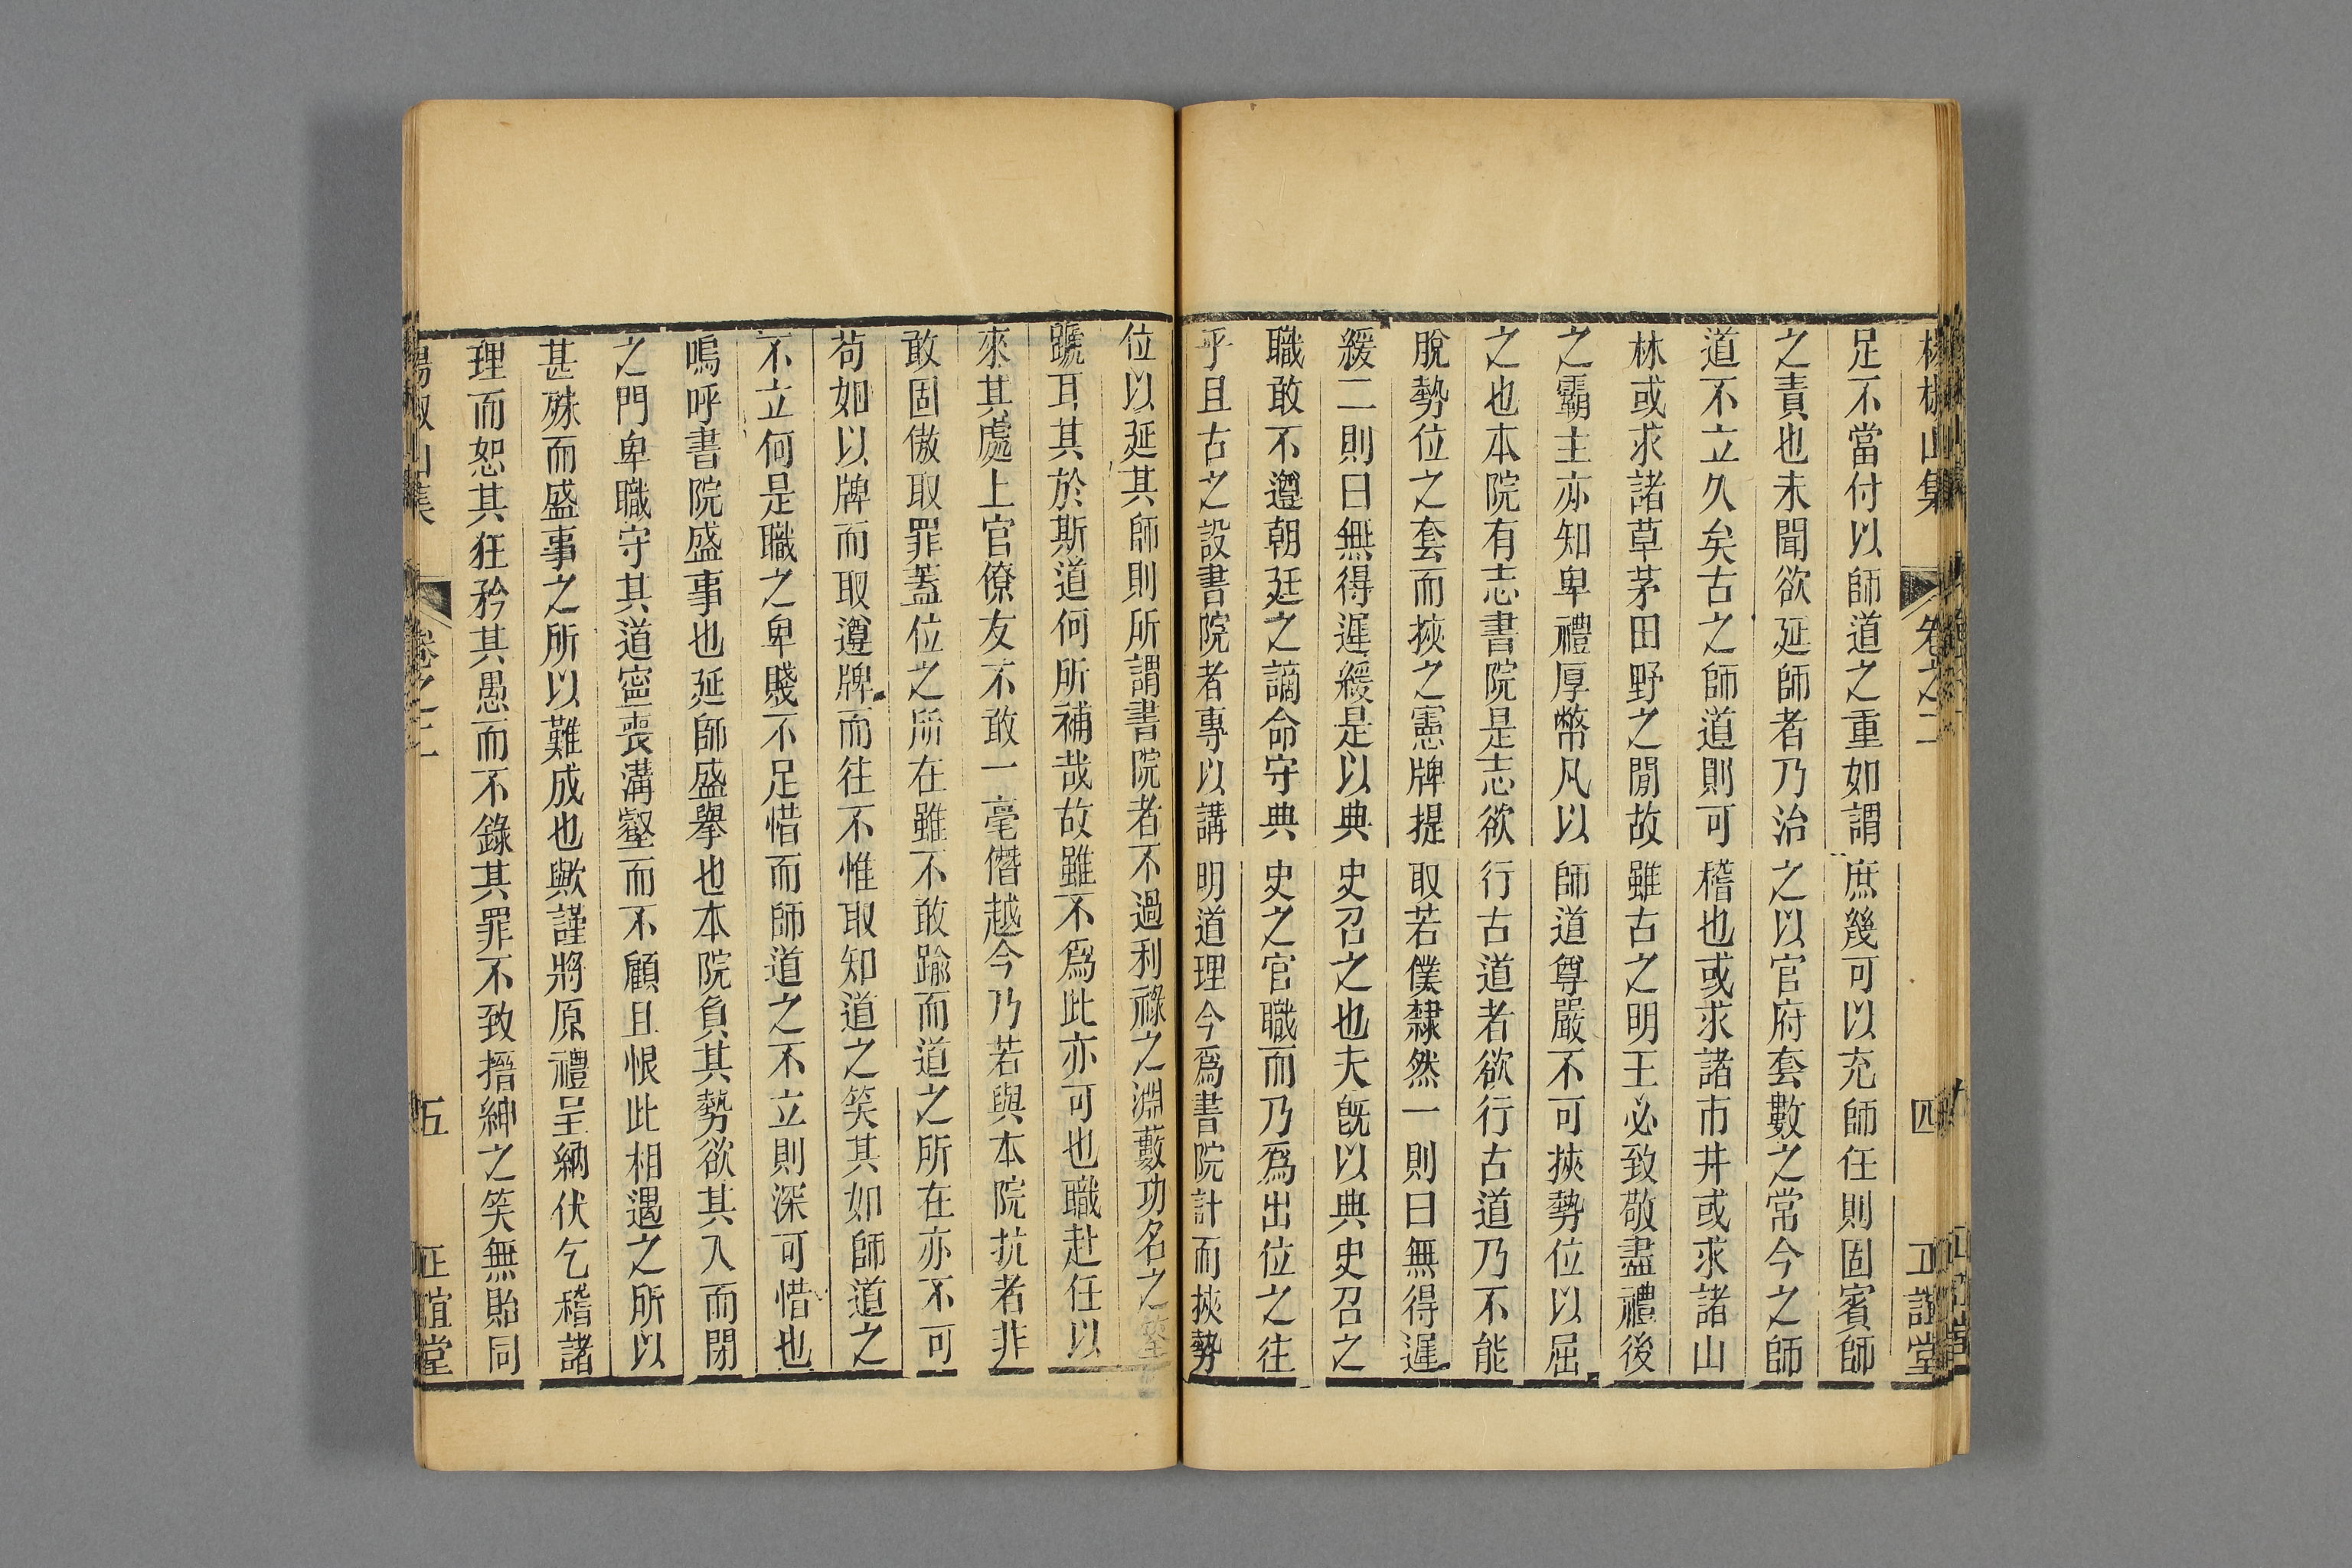 楊椒山集 卷之二 四 正誼堂
足不當付以師道之重如謂庶幾可以充師任則固賓師
之責也未聞欲延師者乃治之以官府套數之常今之師
道不立久矣古之師道則可稽也或求諸市井或求諸山
林或求諸草茅田野之閒故雖古之明王必致敬盡禮後
之霸主亦知卑禮厚幣凡以師道尊嚴不可挾勢位以屈
之也本院有志書院是志欲行古道者欲行古道乃不能
脫勢位之套而挾之憲牌提取若僕隸然一則曰無得遲
緩二則曰無得遲緩是以典史召之也夫旣以典史召之
職敢不遵朝廷之謫命守典史之官職而乃爲出位之往
乎且古之設書院者專以講明道理今爲書院計而挾勢
位以延其師則所謂書院者不過利祿之淵藪功名之筌
蹏耳其於斯道何所補哉故雖不爲此亦可也職赴任以
來其處上官僚友不敢一毫僭越今乃若與本院抗者非
敢固傲取罪蓋位之所在雖不敢踰而道之所在亦不可
苟如以牌而取遵牌而往不惟取知道之笑其如師道之
不立何是職之卑賤不足惜而師道之不立則深可惜也
嗚呼書院盛事也延師盛舉也本院負其勢欲其入而閉
之門卑職守其道寧喪溝壑而不顧且恨此相遇之所以
甚殊而盛事之所以難成也歟謹將原禮呈納伏乞稽諸
理而恕其狂矜其愚而不錄其罪不致搢紳之笑無貽同
楊椒山集 卷之二 五 正誼堂